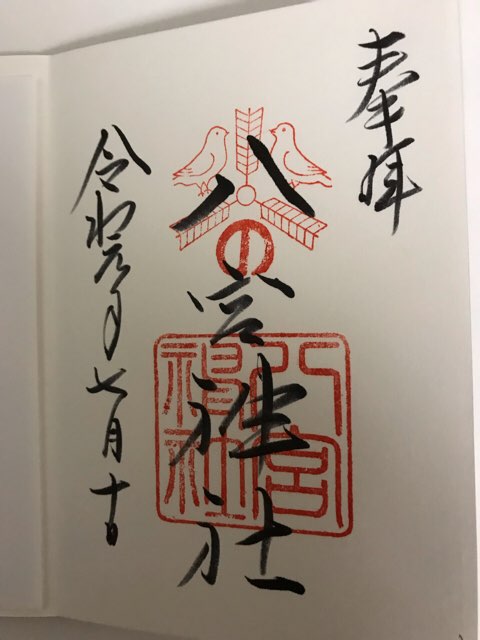 奉拝
八の宮神社
八宮神社
令和元年七月十日